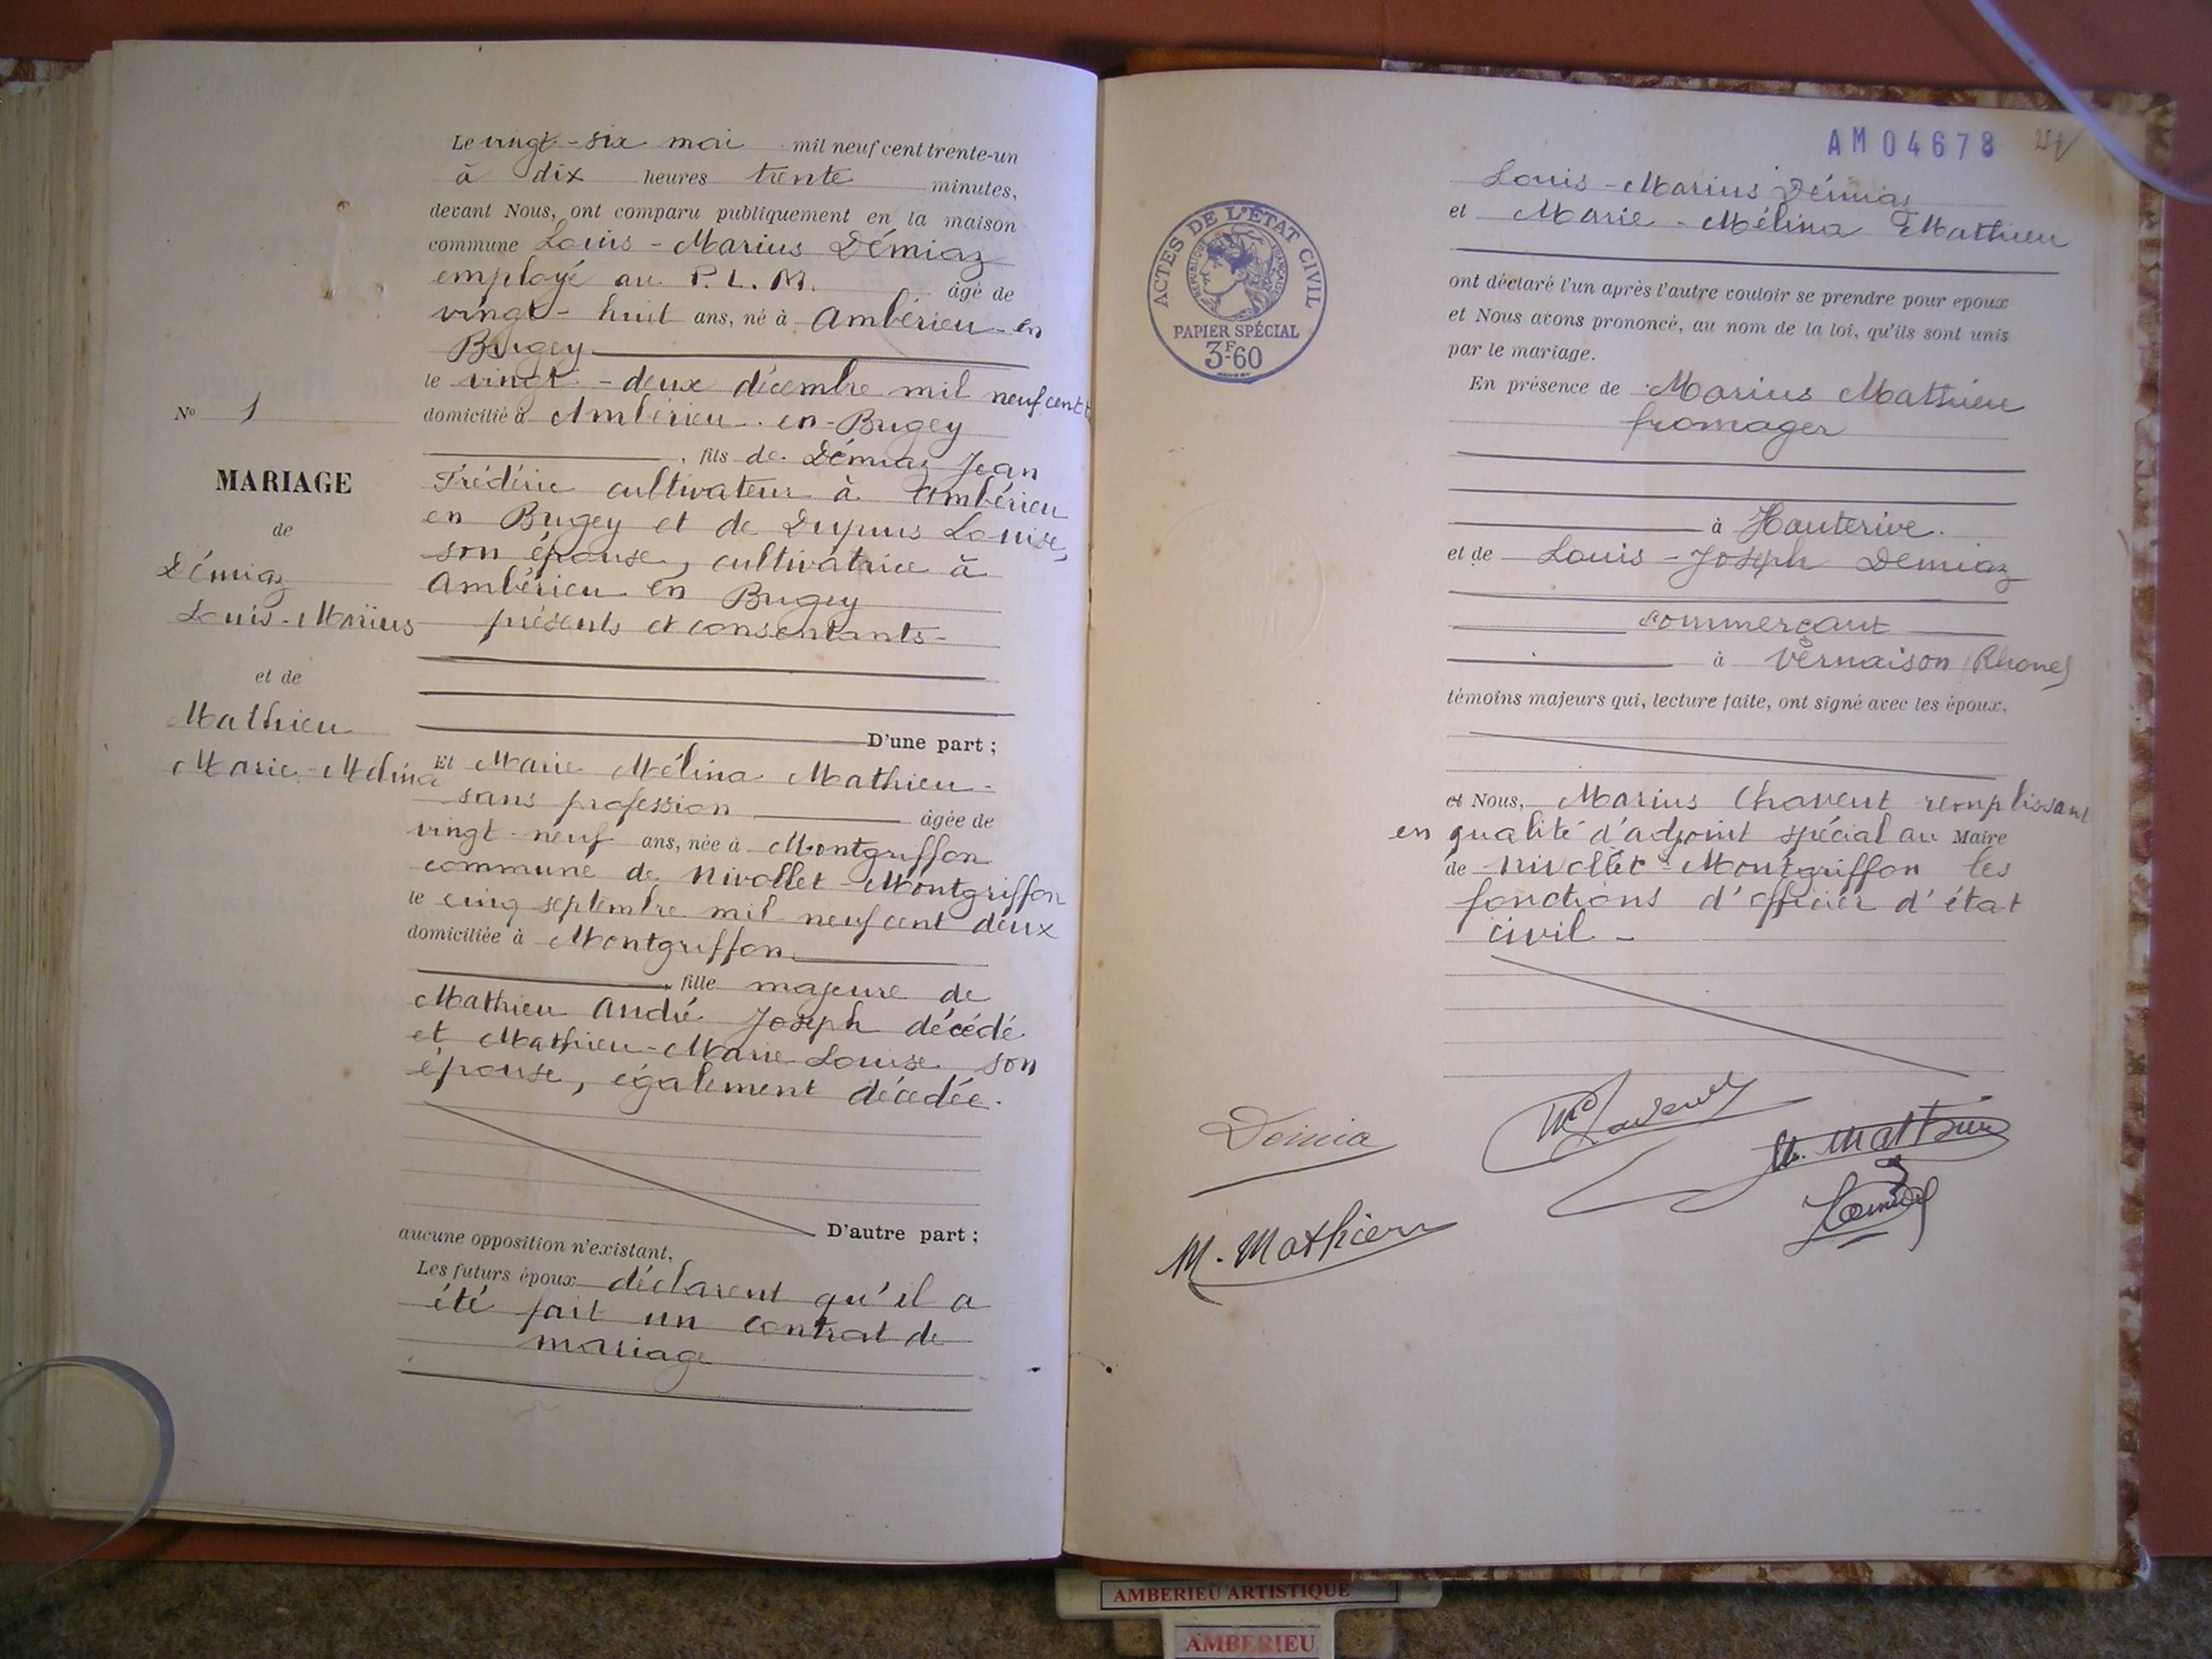 Le vingt-six mai mil neuf cent trente-un
à dix heures trente minutes,
devant Nous, ont comparu publiquement en la maison
commune Louis-Marius Démiaz
employé au P.L.M. âgé de
vingt-huit ans, né à Ambérieu-en
Bugey
le vingt-deux décembre mil neuf cent
domicilié à Ambérieu-en-Bugey
, fils de Démiaz Jean
Frédéric cultivateur à Ambérieu
en Bugey et de Dupuis Louise,
son épouse, cultivatrice à
Ambérieu en Bugey
présents et consentants-
D'une part ;
Et Marie Mélina Mathieu-
sans profession âgée de
vingt-neuf ans, née à Montgriffon
commune de Nivollet-Montgriffon
le cinq septembre mil neuf cent deux
domiciliée à Montgriffon
, fille majeure de
Mathieu André Joseph décédé
et Mathieu-Marie Louise son
épouse, également décédée.
D'autre part ;
aucune opposition n'existant,
Les futurs époux déclarent qu'il a
été fait un contrat de
mariage
N° 1
MARIAGE
de
Démiaz
Louis-Marius
et de
Mathieu
Marie-Melina
AM04678
ACTES DE L'ÉTAT CIVIL
RÉPUBLIQUE FRANÇAISE
PAPIER SPÉCIAL
3F60
Louis-Marius Démiaz
et Marie-Mélina Mathieu
ont déclaré l'un après l'autre vouloir se prendre pour epoux
et Nous avons prononcé, au nom de la loi, qu'ils sont unis
par le mariage.
En présence de Marius Mathieu
fromager
à Hauterive.
et de Louis-Joseph Demiaz
commerçant
à Vernaison (Rhone)
témoins majeurs qui, lecture faite, ont signé avec les époux,
et Nous, Marius Chavent remplissant
en qualité d'adjoint spécial au Maire
de Nivollet-Montgriffon les
fonctions d'officier d'état
civil-
Démia
M. Mathieu
M. Mathieu
AMBERIEU ARTISTIQUE
AMBERIEU